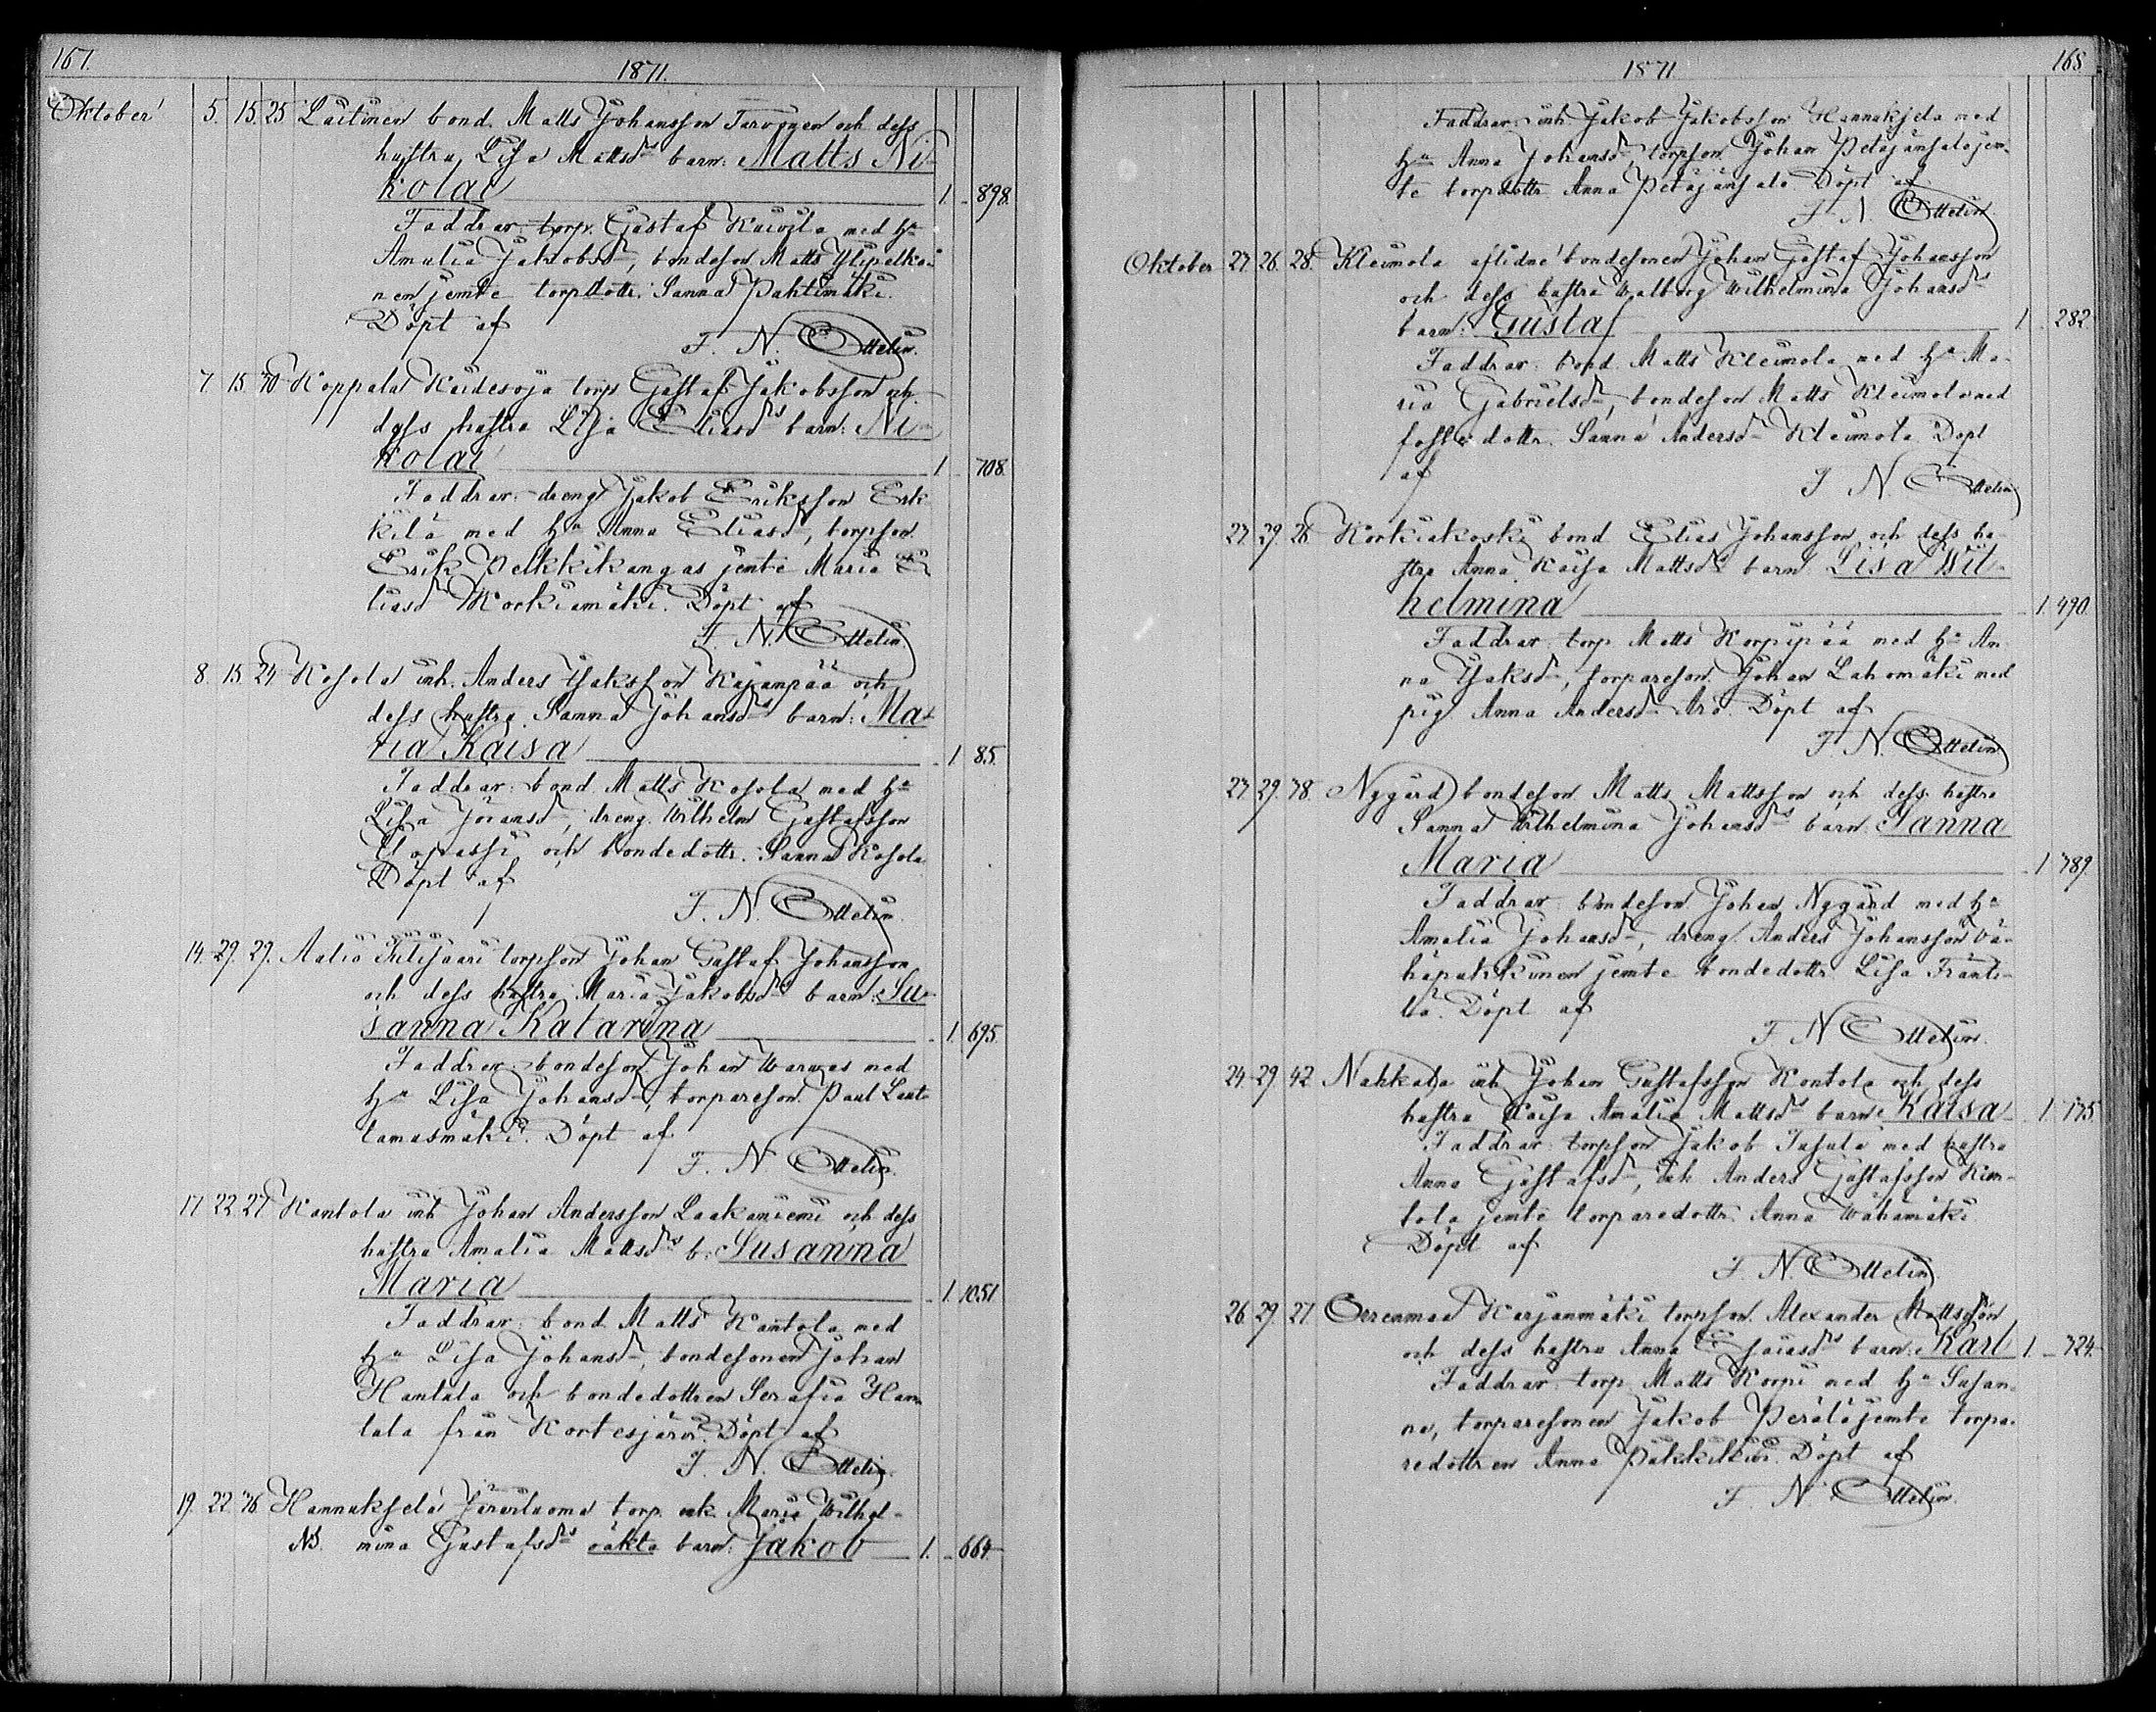 167.
1871.
Oktober 5. 15. 25 Laitinen bond. Matts Johansson Tarvonen och dess
hustru Lisa Mattsdrs barn: Matts Ni-
kolai 1. 898.
Faddrar: torp. Gustaf Kuivila med ha
Amalia Jakobsdr, bondeson Matts Ylipelko-
nen jemte torpdottr. Sanna Pahtimäki.
Döpt af
F. N. Ottelin.
7. 15. 70 Koppala Kaidesoja torp. Gustaf Jakobsson och
dess hustru Lisa Eliasdrs barn: Ni-
kolai 1 708.
Faddrar: dreng Jakob Eriksson Erk-
kilä med ha Anna Eliasdr, torpson
Erik Pelkkikangas jemte Maria E-
liasdr Korkiamäki. Döpt af
F. N. Ottelin.
8. 15. 24 Kosola inh. Anders Isaksson Kajanpää och
dess hustru Sanna Johansdrs barn: Ma-
ria Kaisa 1 85.
Faddrar: bond. Matts Kosola med ha
Lisa Johansdr, dreng. Wilhelm Gustafsson
och bondedottr. Sanna Kosola
Döpt af
F. N. Ottelin.
14. 29. 29. Aaliö torpson Johan Gustaf Johansson
och dess hustru Maria Jakobsdrs barn: Su-
sanna Katarina 1. 695.
Faddrar: bondeson Johan Warwas med
ha Lisa Johansdr, torpareson Paul Laut-
tamasmäki. Döpt af
F. N. Ottelin.
17 22. 27 Kantola inh Johan Andersson Laakaniemi och dess
hustru Amalia Mattsdrs b: Susanna
Maria 1. 1051
Faddrar: bond Matts Kantola med
ha Lisa Johansdr, bondesonen Johan
Hantala och bondedottren Serafia Han-
tala från Kortesjärvi. Döpt af
F. N. Ottelin.
19. 22. 76 Hannuksela Järviluoma torp. enk. Maria Wilhel-
NB. mina Gustafsdrs oäkta barn: Jakob 1. 664
168
1871
Faddrar: inh Jakob Jakobsson Hannuksela med
ha Anna Johansdr, torpson Johan Petäjänsalo jem-
te torpdottr. Anna Petäjänsalo. Döpt af
F. N. Ottelin
Oktober 27 26. 28. Kleimola aflidne bondesonen Johan Gustaf Johansson
och dess hustru Walborg Wilhelmina Johansdrs
barn: Gustaf 1. 282
Faddrar: bond. Matts Kleimola med ha Ma-
ria Gabrielsdr, bondeson Matts Kleimola med
foster dottr. Sanna Andersdr Kleimola. Döpt
af
F. N. Ottelin
27 29. 26 Korkiakoski bond Elias Johansson och dess hu-
stru Anna Kaisa Mattsdrs barn: Lisa Wil-
helmina 1. 490.
Faddrar: torp. Matts Korpipää med ha An-
na Isaksdr, torpareson. Johan Lahomäki med
pig. Anna Andersdr Aro. Döpt af
F. N. Ottelin
27 29. 78. Nygård bondeson Matts Mattsson och dess hustru
Sanna Wilhelmina Johansdrs barn: Sanna
Maria 1 789.
Faddrar: bondeson Johan Nygård med ha
Amalia Johansdr, dreng. Anders Johansson Vä-
häpakkinen jemte bondedottr. Lisa Fränti-
lä. Döpt af
F. N. Ottelin.
24 29 42 Nahkala inh Johan Gustafsson Kontola och dess
hustru Kaisa Amalia Mattsdrs barn: Kaisa 1. 175.
Faddrar: torpson Jakob med hustru
Anna Gustafsdr, inh Anders Gustafsson Kon-
tola jemte torparedottr. Anna Wähämäki.
Döpt af
F. N. Ottelin
26. 29. 27 Karjanmäki torpson. Alexander Mattsson
och dess hustru Anna Esaiasdrs barn: Karl 1. 724.
Faddrar: torp. Matts Korpi med ha Susan-
na, torparesonen Jakob Perälä jemte torpa-
redottren Anna Pakkikivi. Döpt af
F. N. Ottelin.